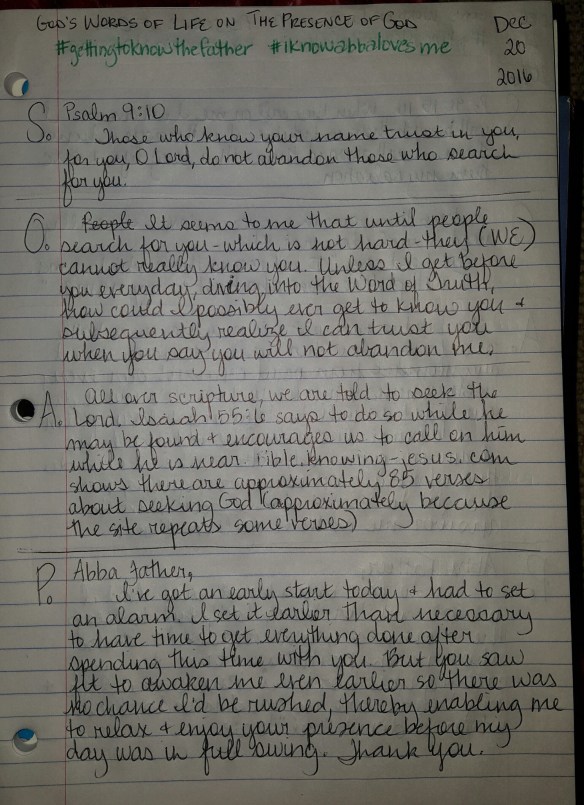 GOD'S WORDS OF LIFE ON THE PRESENCE OF GOD
#gettingtoknowthefather #iknowabbalovesme
Dec
20
2016
S. Psalm 9:10
Those who know your name trust in you,
for you, O Lord, do not abandon those who search
for you.
O. People It seems to me that until people
search for you - which is not hard - they (WE)
cannot really know you. Unless I get before
you everyday, diving into the Word of Truth,
how could I possibly ever get to know you +
subsequently realize I can trust you
when you say you will not abandon me.
A. All over scripture, we are told to seek the
Lord. Isaiah 55:6 says to do so while he
may be found + encourages us to call on him
while he is near. bible.knowing-jesus.com
shows there are approximately 85 verses
about seeking God (approximately because
the site repeats some verses)
P. Abba Father,
I've got an early start today + had to set
an alarm. I set it earlier than necessary
to have time to get everything done after
spending this time with you. But you saw
fit to awaken me even earlier so there was
no chance I'd be rushed, thereby enabling me
to relax + enjoy your presence before my
day was in full swing. Thank you.